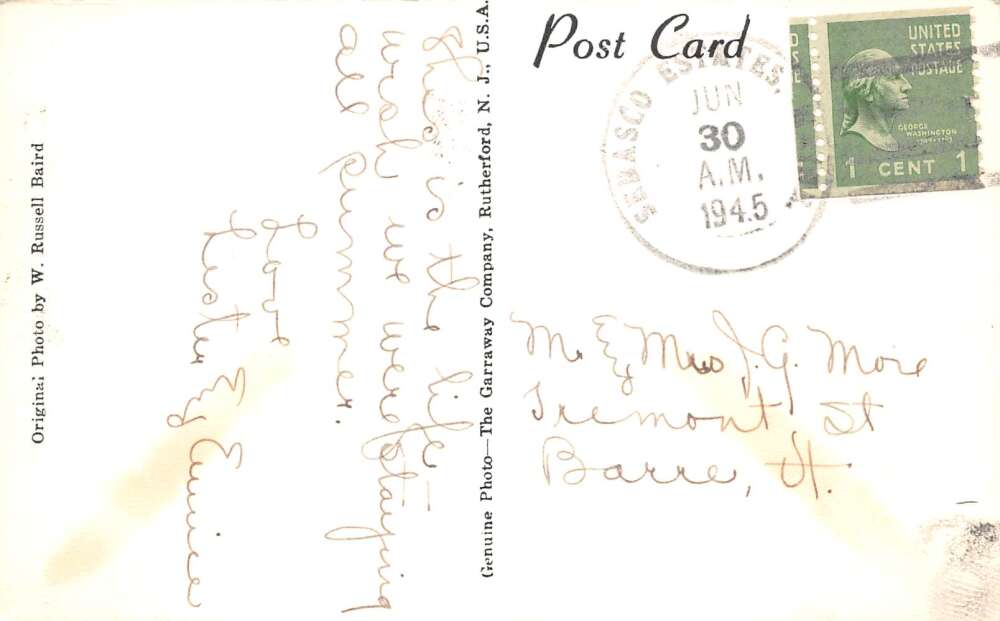 Post Card
SEBASCO ESTATES,
JUN
30
A.M.
1945
UNITED
STATES
POSTAGE
GEORGE
WASHINGTON
1 CENT 1
This is the life -
wish we were staying
all summer.
Love
Lester & Eunice
Mr. & Mrs J. G. More
Tremont St
Barre, Vt.
Genuine Photo—The Garraway Company, Rutherford, N. J., U.S.A.
Original Photo by W. Russell Baird